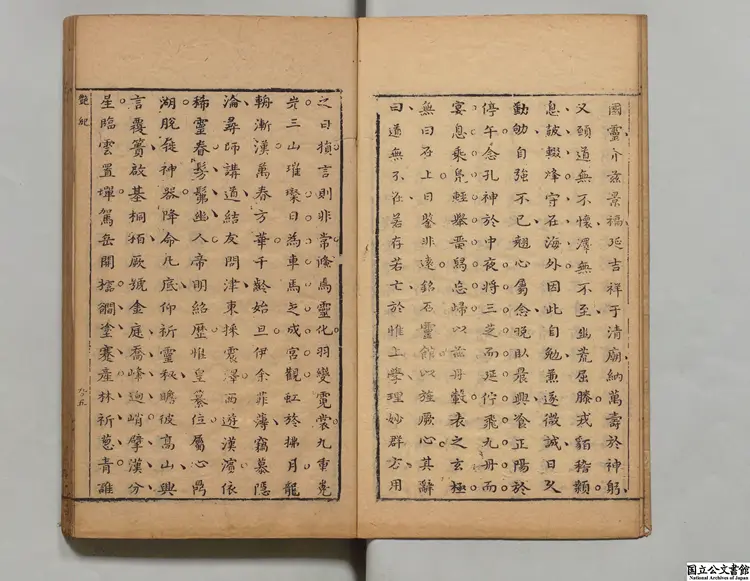 國靈介茲景福延吉祥于清廟納萬壽於神躬
又願道無不懷澤無不至幽荒屈膝戎貊稽顙
息鼓輟烽守在海外因此自勉兼遂微誠日久
勤劬自強不已翹心屬念晚臥晨興飡正陽於
停午念孔神於中夜將三芝而延佇飛九丹而
宴息乘鳧輕舉畱舄忘歸以茲丹縠表之玄極
無曰在上日鑒非遠銘石靈館以旌厥心其辭
曰道無不在若存若亡於惟上學理妙群方用
之日損言則非常儵焉靈化羽變霓裳九重嵬
岌三山璀璨日為車馬芝成宮觀虹於拂月龍
輈漸漢萬春方華千齡始旦伊余菲薄竊慕隱
淪尋師講道結友問津東採震澤西遊漢濱依
稀靈眷髣髴幽人帝明紹歷惟皇纂位屬心鼎
湖脫屣神器降命凡底仰祈靈秘瞻彼高山興
言覆簣啟基桐栢厥號金庭喬峰迥峭擘漢分
星臨雲置墠駕岳開櫺塗蹇產林祈蔥青誰
艷紀
国立公文書館
National Archives of Japan